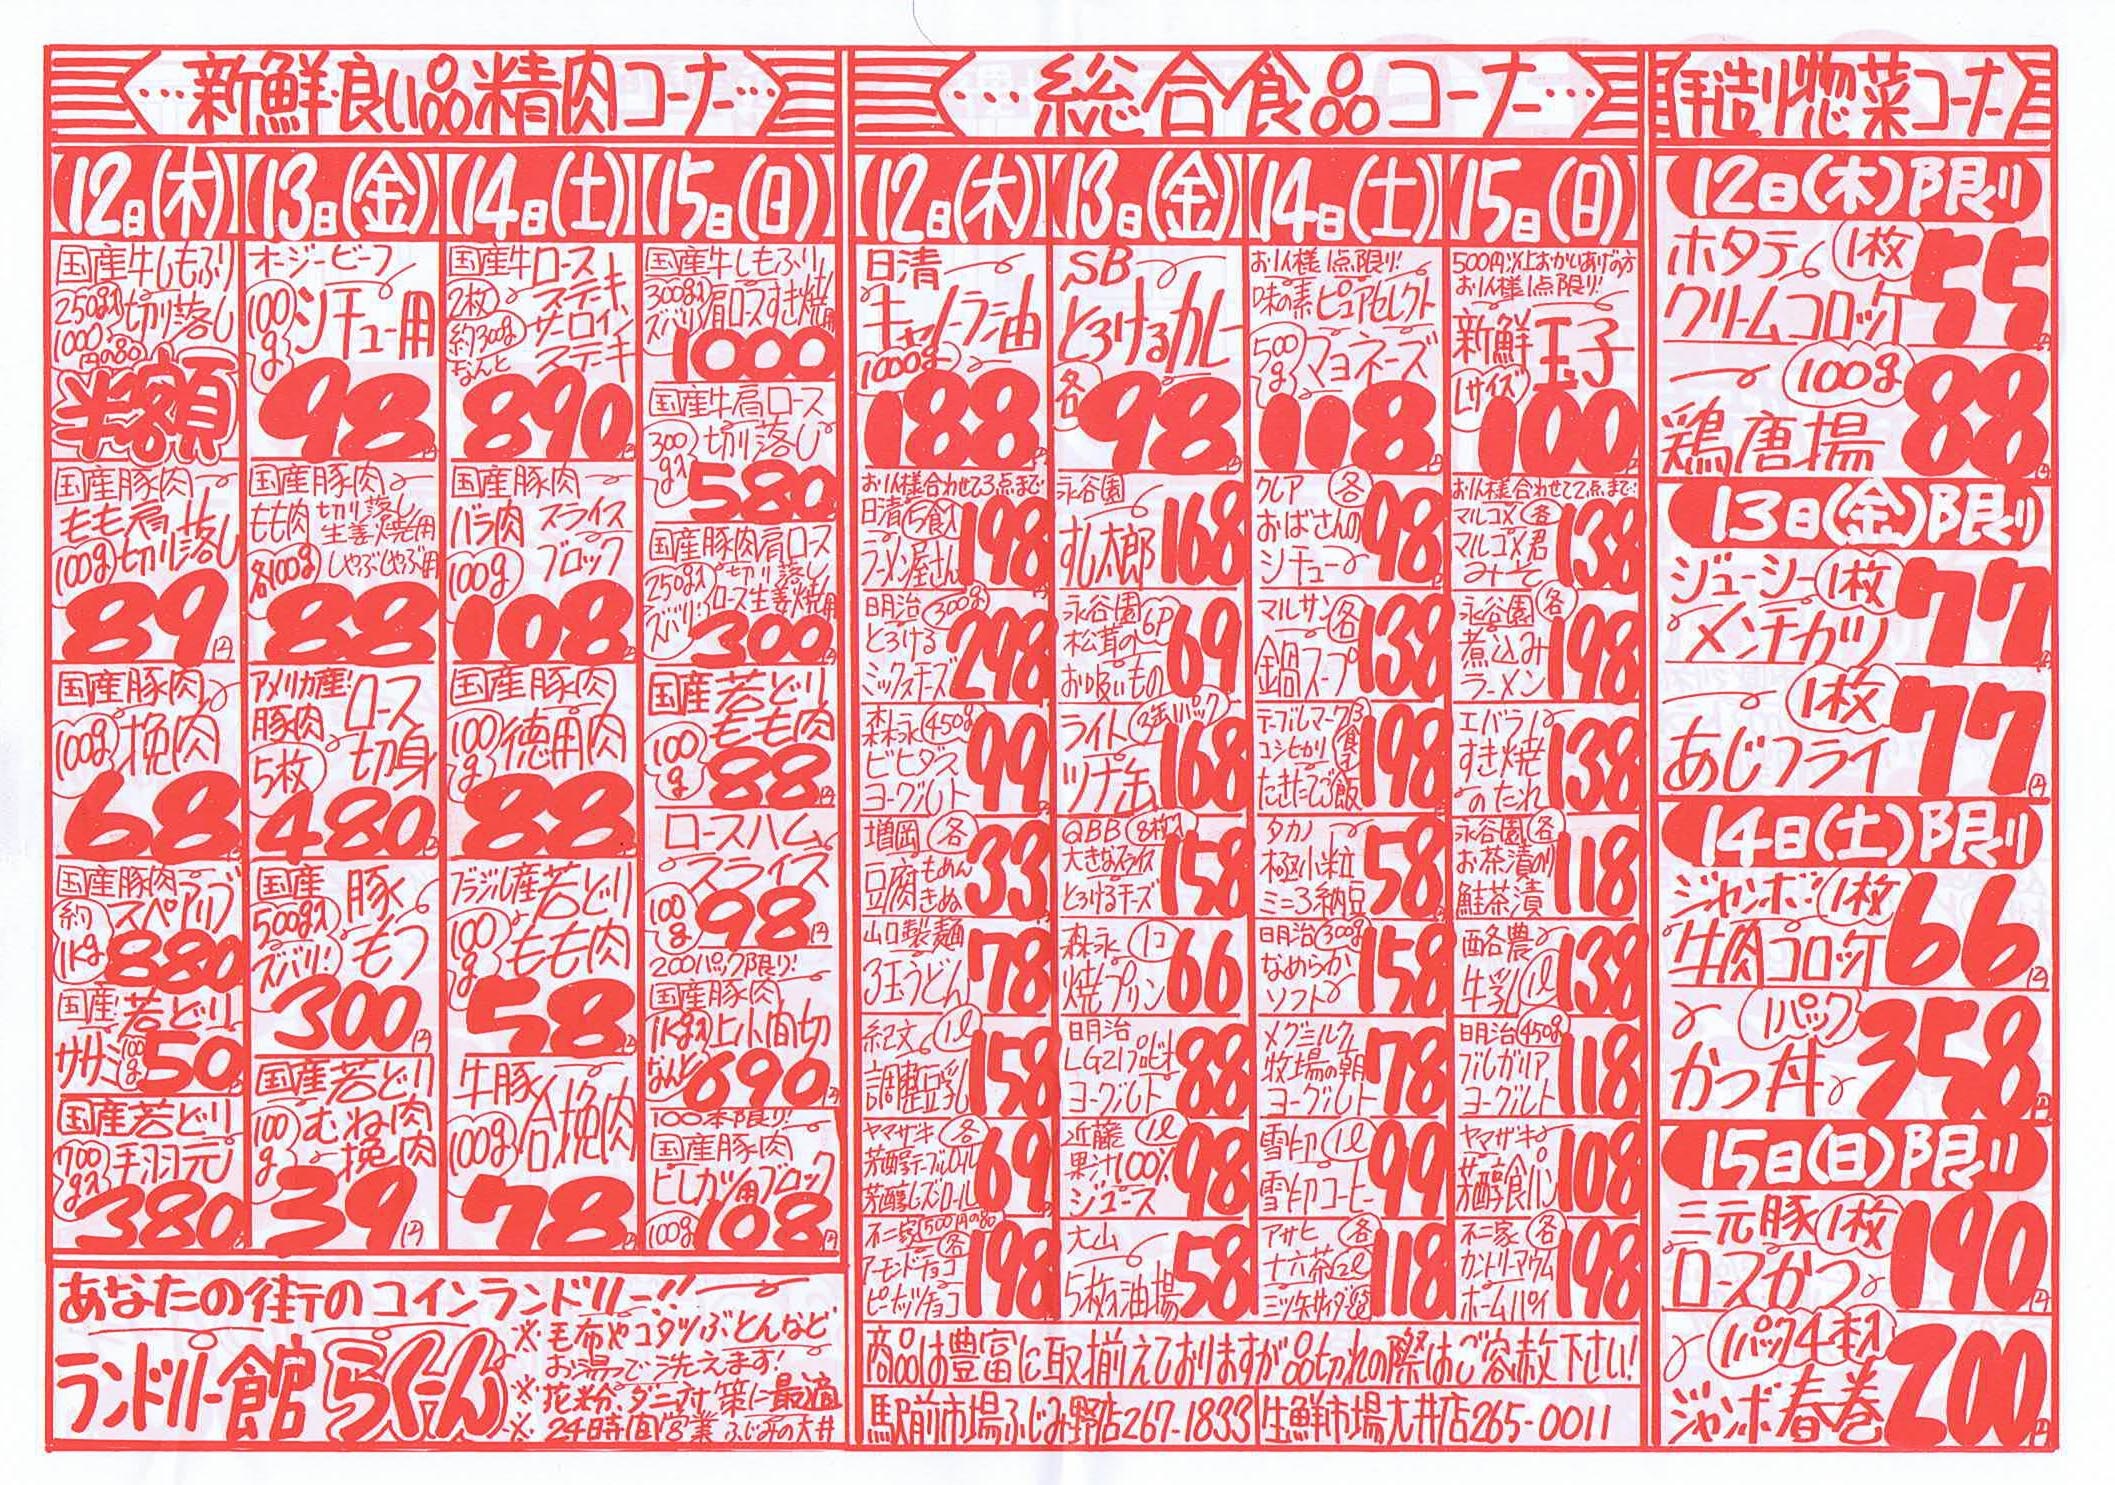 …新鮮良い品精肉コーナー…
12日(木)
国産牛しもふり
250g入
切り落し
1000円の品
半額
国産豚肉
もも肩
100g
切り落し
89円
国産豚肉
100g
挽肉
68円
国産豚肉
スペアリブ
約1Kg
880円
国産若どり
ササミ
100g
50円
国産若どり
700g入
手羽元
380円
13日(金)
オージービーフ
100g
シチュー用
98円
国産豚肉
もも肉
切り落し
生姜焼用
各100g
しゃぶしゃぶ用
88円
アメリカ産!
豚肉
ロース
切身
5枚
480円
国産
豚
500g入
もつ
ズバリ!
300円
国産若どり
100g
むね肉
挽肉
39円
14日(土)
国産牛ロース
ステーキ
2枚
約300g
サーロイン
ステーキ
なんと
890円
国産豚肉
バラ肉
スライス
100g
ブロック
108円
国産豚肉
100g
徳用肉
88円
ブラジル産若どり
100g
もも肉
58円
牛豚
100g
合挽肉
78円
15日(日)
国産牛しもふり
300g入
ズバリ!
肩ロースすき焼用
1000円
国産牛肩ロース
300g入
切り落し
580円
国産豚肉肩ロース
250g入
切り落し
ズバリ!
ロース生姜焼用
300円
国産若どり
もも肉
100g
88円
ロースハム
スライス
100g
98円
200パック限り!
国産豚肉
1Kg入
上小間切
なんと
690円
100本限り!
国産豚肉
ヒレカツ用ブロック
100g
108円
あなたの街のコインランドリー!!
ランドリー館 らくーん
※毛布やコタツぶとんなど
お湯で洗えます!
※花粉、ダニ対策に最適
※24時間営業 ふじみの大井
…総合食品コーナー…
12日(木)
日清
キャノーラ油
1000g
188円
お1人様合わせて3点まで
日清
5食入
ラーメン屋さん
198
明治
300g
とろける
ミックスチーズ
298
森永
450g
ビヒダス
ヨーグルト
99
増岡
各
豆腐
もめん
きぬ
33
山口製麺
3玉うどん
78
紀文
1ℓ
調整豆乳
158
ヤマザキ
各
芳醇テーブルロール
芳醇レーズンロール
69
不二家
500円の品
各
アーモンドチョコ
ピーナッツチョコ
198
13日(金)
SB
とろけるカレー
各
98円
永谷園
すし太郎
168
永谷園
6P
松茸の
お吸いもの
69
ライト
3缶1パック
ツナ缶
168
QBB
8枚入
大きなスライス
とろけるチーズ
158
森永
1コ
焼プリン
66
明治
LG21プロビオ
ヨーグルト
88
近藤
1ℓ
果汁100%
ジュース
98
大山
5枚油揚
58
14日(土)
お1人様1点限り!
味の素ピュアセレクト
500g
マヨネーズ
118円
クレア
各
おばさんの
シチュー
98
マルサン
各
鍋スープ
138
テーブルマーク
コシヒカリ
3食
たきたてご飯
198
タカノ
極小粒
ミニ3納豆
58
明治
300g
なめらか
ソフト
158
メグミルク
牧場の朝
ヨーグルト
78
雪印
1ℓ
雪印コーヒー
99
アサヒ
各
十六茶2ℓ
三ツ矢サイダー1.5ℓ
118
15日(日)
500円以上おかいあげの方
お1人様1点限り!
新鮮
玉子
Lサイズ
100円
お1人様合わせて2点まで
マルコメ
各
マルコメ君
みそ
138
永谷園
各
煮込み
ラーメン
198
エバラ
すき焼
のたれ
138
永谷園
各
お茶漬のり
鮭茶漬
118
酪農
牛乳
1ℓ
138
明治
450g
ブルガリア
ヨーグルト
118
ヤマザキ
芳醇食パン
108
不二家
各
カントリーマアム
ホームパイ
198
商品は豊富に取揃えておりますが品切れの際はご容赦下さい!
駅前市場ふじみ野店267-1833
生鮮市場大井店265-0011
手造り惣菜コーナー
12日(木)限り
ホタテ
1枚
クリームコロッケ
55円
100g
鶏唐揚
88円
13日(金)限り
ジューシー
1枚
メンチカツ
77円
1枚
あじフライ
77円
14日(土)限り
ジャンボ
1枚
牛肉コロッケ
66円
1パック
かつ丼
358円
15日(日)限り
三元豚
1枚
ロースかつ
190円
1パック4本入
ジャンボ春巻
200円